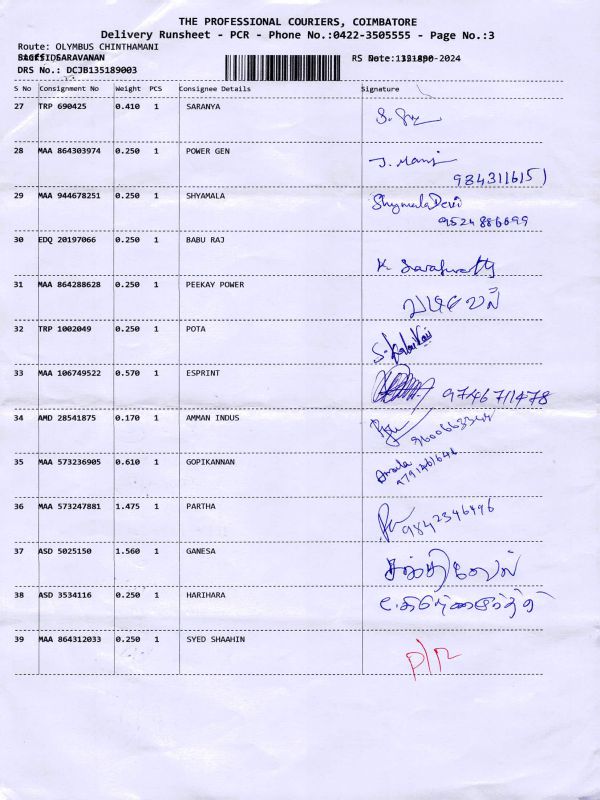 THE PROFESSIONAL COURIERS, COIMBATORE
Delivery Runsheet - PCR - Phone No.:0422-3505555 - Page No.:3
Route: OLYMBUS CHINTHAMANI
SARAVANAN RS -2024
DRS No.: DCJB135189003
S No Consignment No Weight PCS Consignee Details Signature
27 TRP 690425 0.410 1 SARANYA
28 MAA 864303974 0.250 1 POWER GEN J. Mani
9843116151
29 MAA 944678251 0.250 1 SHYAMALA Shymala Devi
9524886699
30 EDQ 20197066 0.250 1 BABU RAJ K
31 MAA 864288628 0.250 1 PEEKAY POWER
32 TRP 1002049 0.250 1 POTA
33 MAA 106749522 0.570 1 ESPRINT 9746711478
34 AMD 28541875 0.170 1 AMMAN INDUS
35 MAA 573236905 0.610 1 GOPIKANNAN
36 MAA 573247881 1.475 1 PARTHA 9842346496
37 ASD 5025150 1.560 1 GANESA சக்திவேல்
38 ASD 3534116 0.250 1 HARIHARA
39 MAA 864312033 0.250 1 SYED SHAAHIN